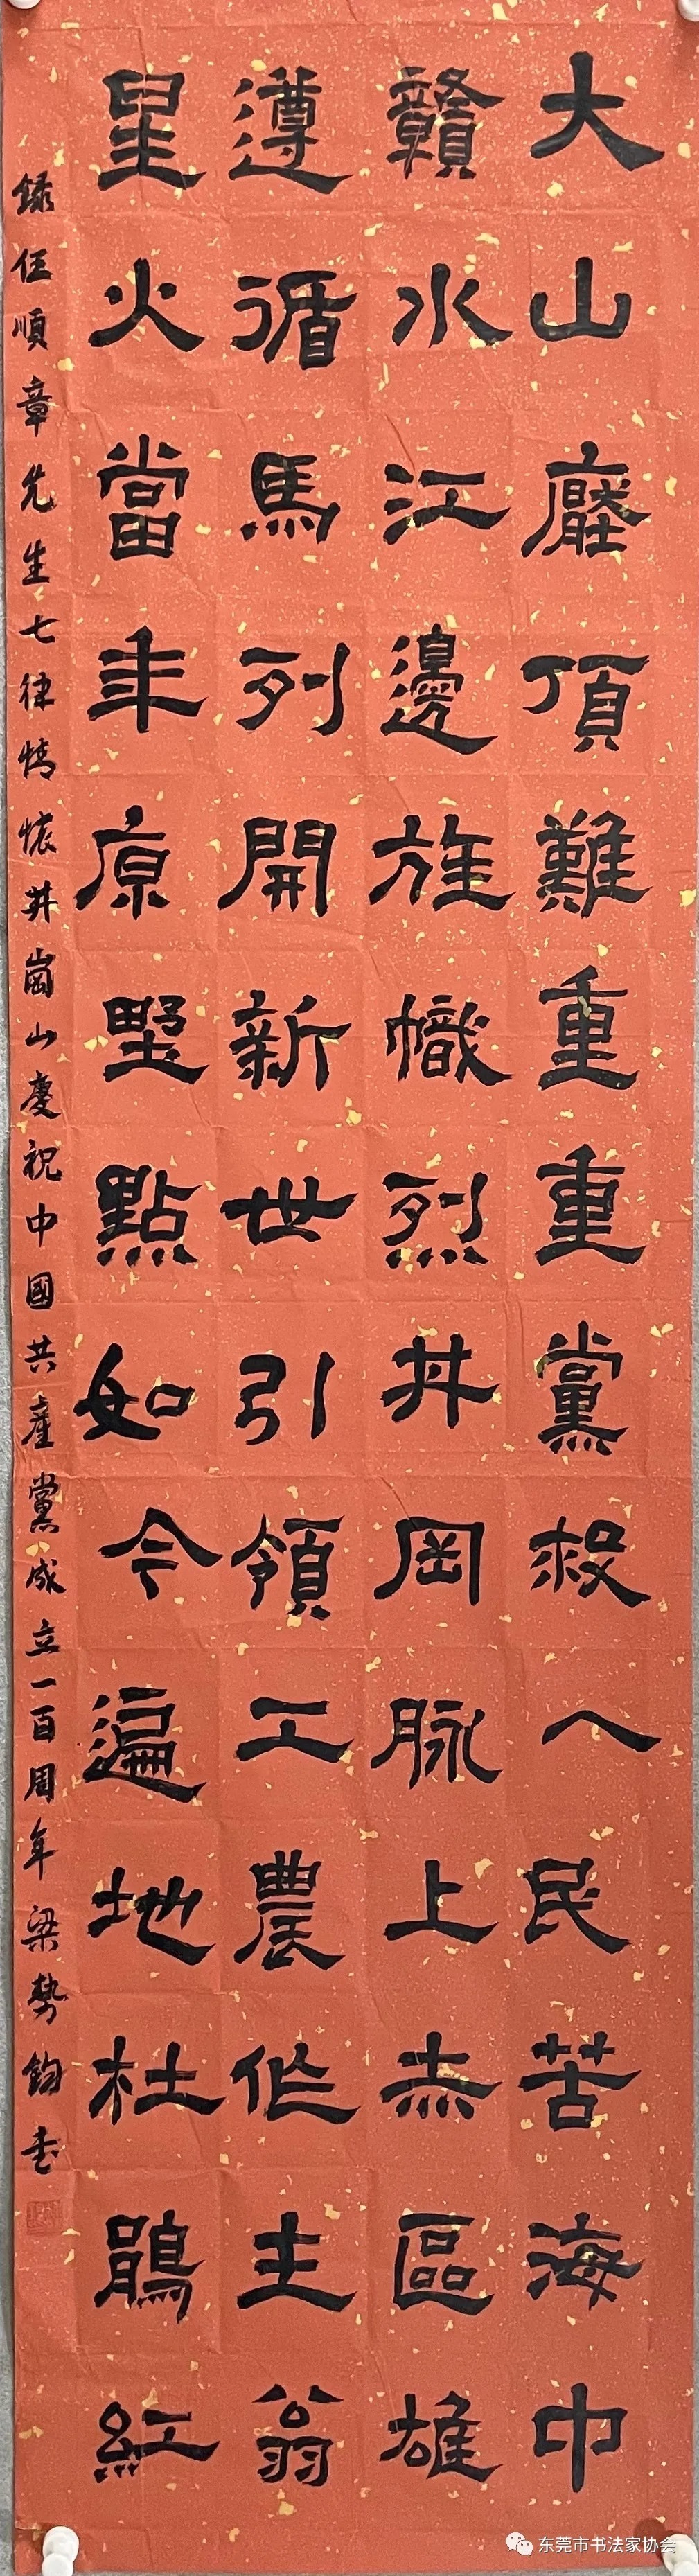 大山壓頂難重重黨救人民苦海中
贛水江邊旌幟烈井岡脉上赤區雄
遵循馬列開新世引領工農作主翁
星火當年原野點如今遍地杜鵑紅
錄伍順章先生七律情懷井崗山慶祝中國共產黨成立一百周年梁勢鈞書
东莞市书法家协会